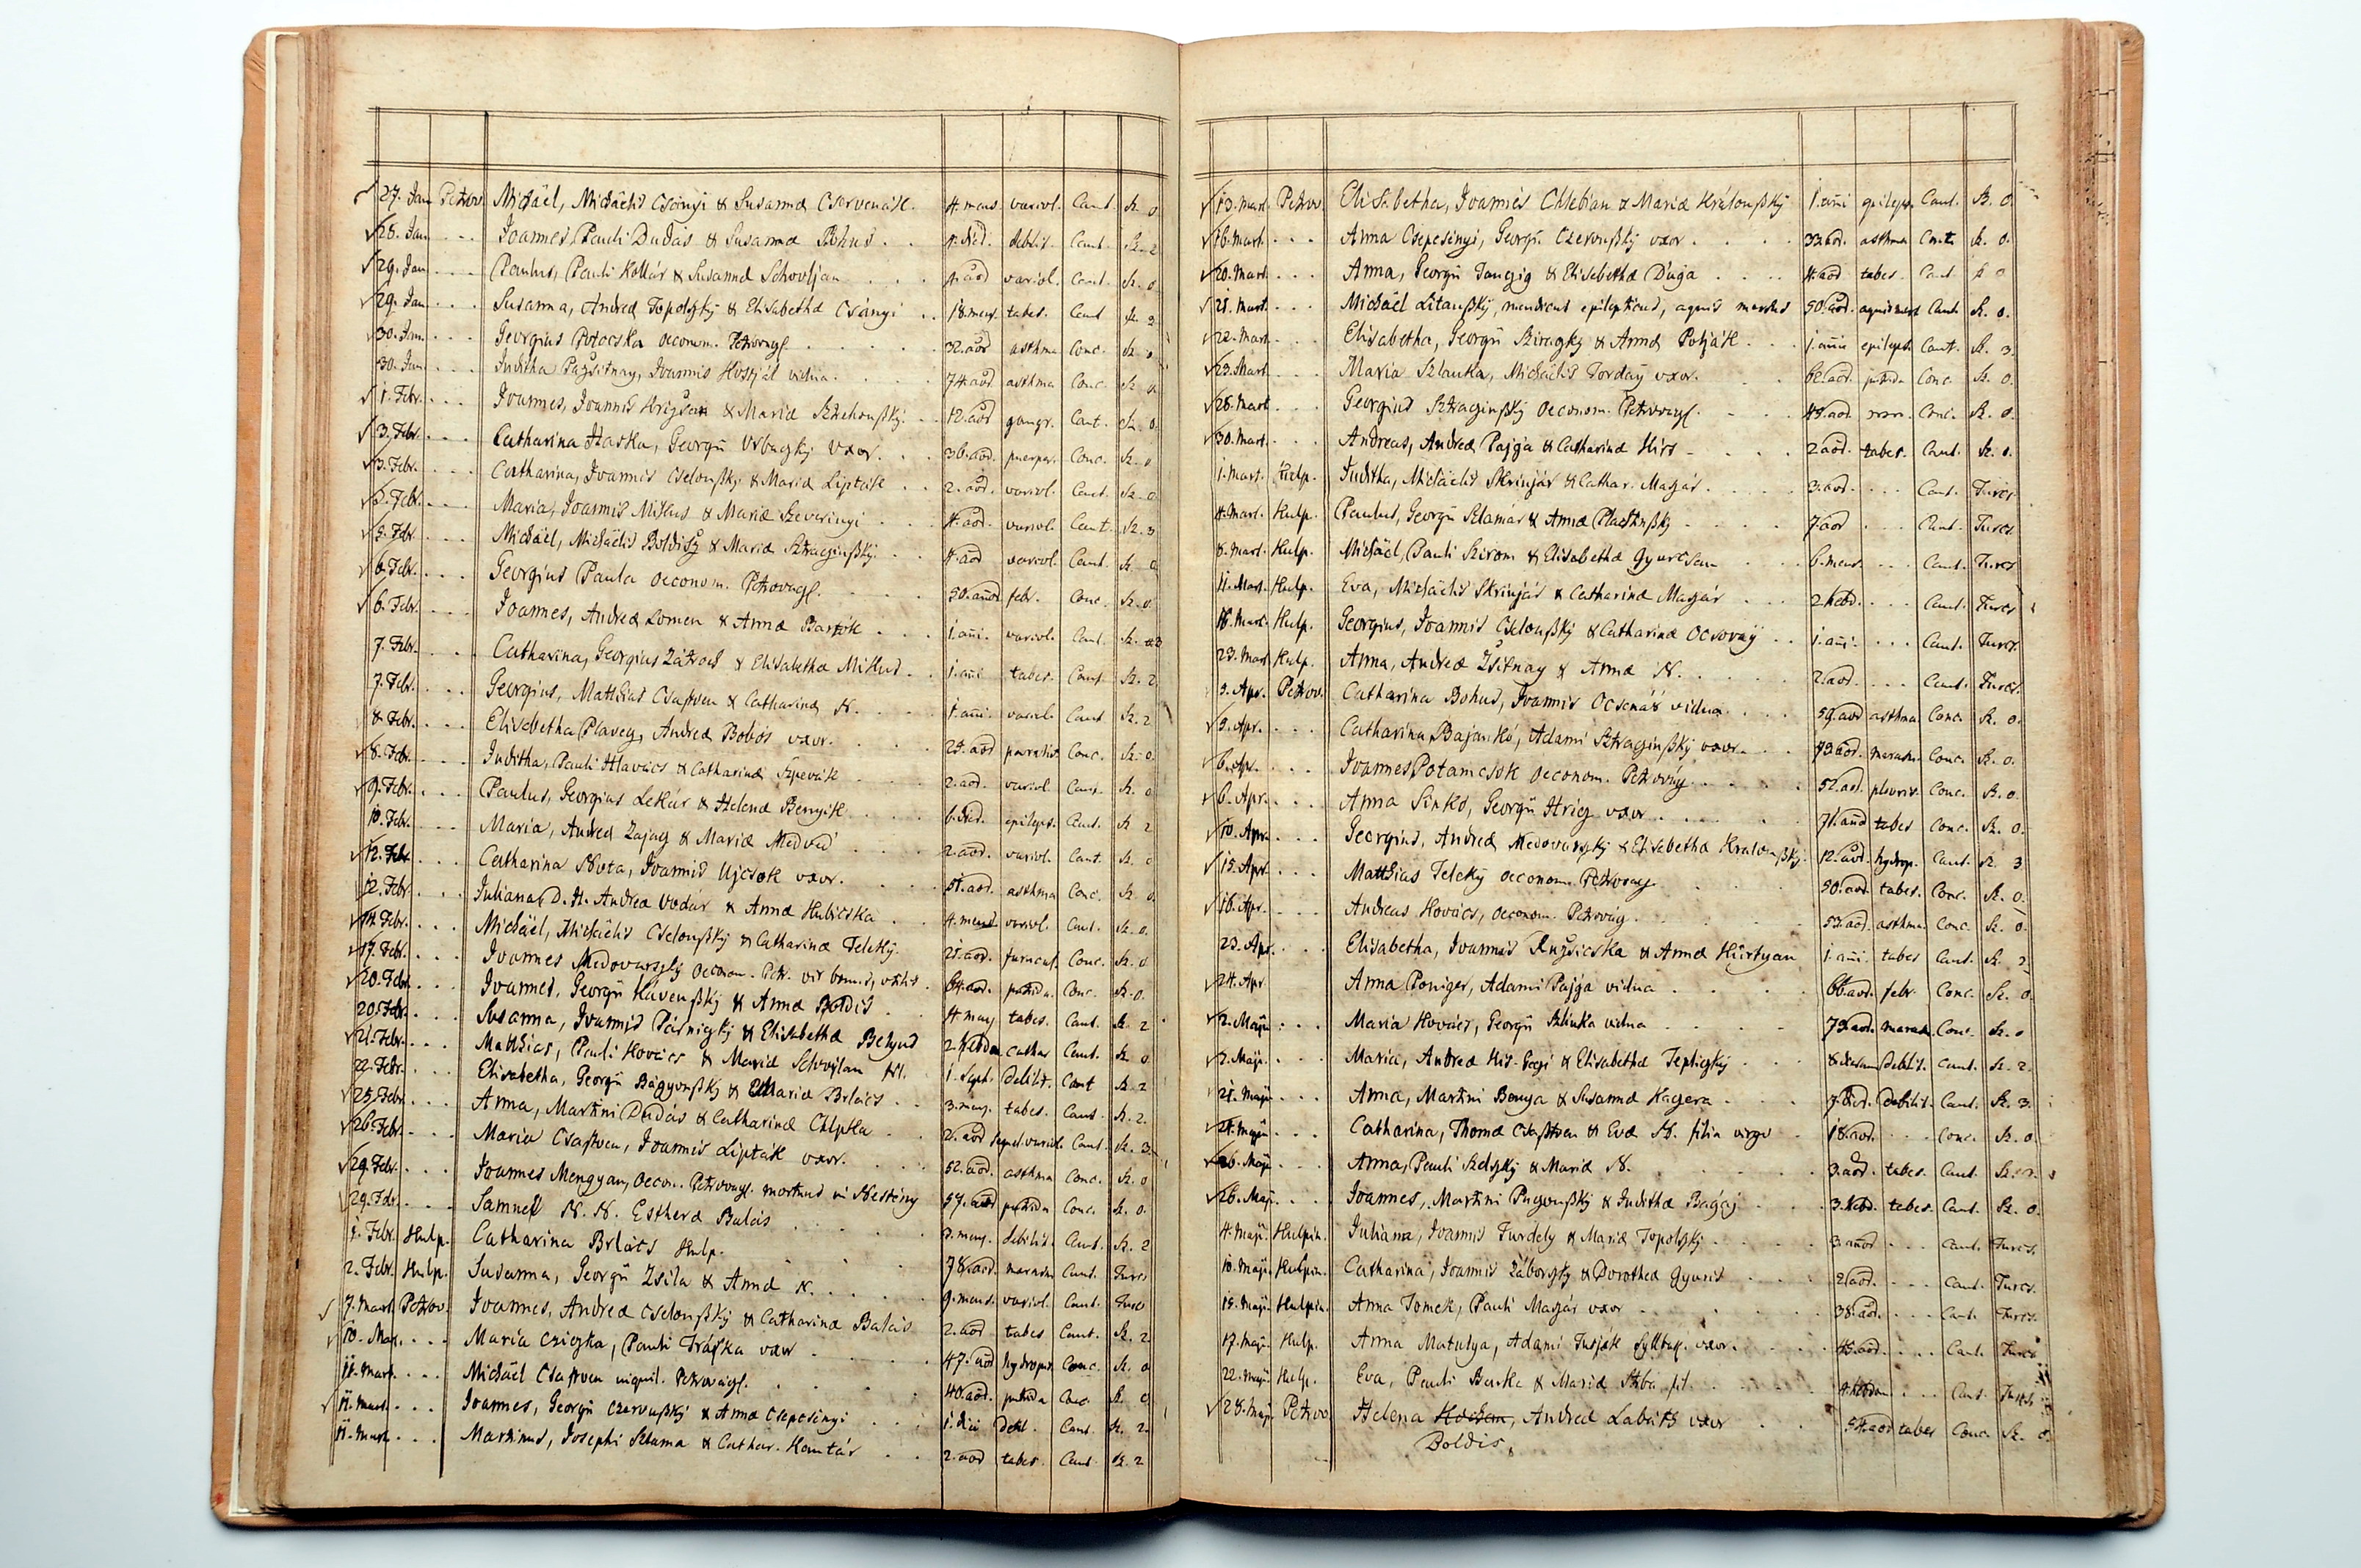 27. Jan Petrov. Michäel, Michäelis Csányi & Susannæ Cservenák. 4. mens. variol. Cant. Sz. 0
28. Jan. Joannes, Pauli Dudás & Susannæ Bohus 4. died. debilit. Cant. Sz. 2
29. Jan. Paulus, Pauli Kollár & Susannæ Schovljan 4. aõd variol. Cant. Sz. 0
29. Jan. Susanna, Andreæ Topolszky & Elisabethæ Csányi 18. mens. tabes. Cant Sz. 2
30. Jan. Georgius Potocska oeconom. Petrovagy. 32. aõd asthma Conc. Sz. 0
30. Jan. Juditha Pazsitnay, Joannis Hostyál vidua. 74. aõd asthma Conc. Sz. 0.
1. Febr. Joannes, Joannis & Mariæ 12. aõd gangr. Cant. Sz. 0.
3. Febr. Catharina Haska, Georgii Vrbuszky Uxor. 36. aõd. puerper. Conc. Sz. 0
3. Febr. Catharina, Joannis Cselouszky & Mariæ Lipták 2. aõd. variol. Cant. Sz. 0
Febr. Maria, Joannis Miklus & Mariæ Szeverinyi 4. aõd. variol. Cant. Sz. 3
5. Febr. Michäel, Michäelis Boldisz & Mariæ Sztraczinszky. 4. aõd variol. Cant. Sz. 0
6. Febr. Georgius Paula oeconom. Petrovagy. 50. aõd. febr. Conc. Sz. 0.
6. Febr. Joannes, Andreæ Lomen & Annæ Bartók 1. añi. variol. Cant. Sz.
7. Febr. Catharina, Georgius Zátroch & Elisabethæ Miklus. 1. añi tabes. Cant. Sz. 2
7. Febr. Georgius, Mathias Csasztven & Catharinæ N. 1. añi. variol. Cant Sz. 2
8. Febr. Elisabetha Plavecz, Andreæ Bobos uxor. 25. aõd Conc. Sz. 0.
8. Febr. Juditha, Pauli Hlavács & Catharinæ Szpevák 2. aõd. variol. Cant. Sz. 0
9. Febr. Paulus, Georgius Lekár & Helenæ Benyik 6. died. epileps. Cant. Sz 2
10. Febr. Maria, Andreæ Zajacz & Mariæ Medved 2. aõd. variol. Cant. Sz. 0
12. Febr. Catharina Nota, Joannis Ujcsok uxor. 51. aõd. asthma Conc. Sz. 0.
12. Febr. Juliana, D. H. Andreæ Vodár & Annæ Hubicska 4. mens variol. Cant. Sz. 0.
14. Febr. Michäel, Michäelis Cselouszky & Catharinæ Teleky. 21. aõd. Conc. Sz. 0
17. Febr. Joannes Medovarszky Oeconom. Petr. vir 64. aõd. putrida. Conc. Sz. 0.
20. Febr. Joannes, Georgii Havenszky & Annæ Boldis 4. mens tabes. Cant. Sz. 2
20. Febr. Susanna, Joannis Párniczky & Elisabethæ Behus 2. hebdom. Cant. Sz. 0
21. Febr. Mathias, Pauli Kovács & Mariæ Schovljan N. 1. Sept. debilit. Cant Sz. 2
22. Febr. Elisabetha, Georgii Bagyonszky & Mariæ Brlács 3. mens. tabes. Cant Sz. 2.
25. Febr. Anna, Martini Dudás & Catharinæ Chlpka 2. aõd variol. Cant. Sz. 3
26. Febr. Maria Csasztven, Joannis Lipták uxor. 52. aõd. asthma Conc. Sz. 0
29. Febr. Joannes Mengyan, Oecon. Petrovagy. mortuus in Mestény 57. aõd putrida Conc. Sz. 0.
29. Febr. Samuel N. N. Estheræ Balás 3. mens. debilis. Cant. Sz. 2
1. Febr. Hulp. Catharina Brlács Hulp. 78. aõd. marasm Cant. Turcs
2. Febr. Hulp. Susanna, Georgii Zsila & Annæ N. 9. mens. variol. Cant. Turcs
7. Mart. Petrov. Joannes, Andreæ Cselouszky & Catharinæ Balás 2. aõd tabes Cant. Sz. 2
10. Mar. Maria Cziczka, Pauli Tráska uxor 47. aõd hydrops. Conc. Sz. 0
11. Mart. Michäel Csasztven inquil. Petrovagy. 40. aõd. putrida Conc Sz. 0
11. Mart. Joannes, Georgii Czervuszky & Annæ Csepcsinyi 1. diei debil. Cant. Sz. 2.
11. Mart. Martinus, Josephi Szlama & Cathar. Kantár 2. aõd tabes. Cant. Sz. 2
13. Mart. Petrov. Elisabetha, Joannis Chlebjan & Mariæ Králoußky 1. añi epileps. Cant. Sz. 0.
16. Mart. Anna Csepcsinyi, Georgii Czervußky uxor 33. aõd. asthma Cant. Sz. 0.
20. Mart. Anna, Georgii Tanczig & Elisabethæ Duga 4. aõd tabes. Cant Sz 0
21. Mart. Michäel Litaußky, mendicus epilepticus, aquis mersus 50. aõd. aquis mers Cant. Sz. 0.
22. Mart. Elisabetha, Georgii Sziraczky & Annæ Poliák 1. añi epileps. Cant. Sz. 3.
23. Mart. Maria Szlauka, Michäelis Torday uxor. 62. aõd. putrida Conc. Sz. 0.
28. Mart Georgius Sztraczinßky oeconom. Petrovagy. 45. aõd. Conc. Sz. 0.
30. Mart. Andreas, Andreæ Pajga & Catharinæ Hirs 2. aõd. tabes. Cant. Sz. 0.
1. Mart. Hulp. Juditha, Michäelis Skrinjár & Cathar. Magár. 3. aõd. Cant. Turcs.
4. Mart. Hulp. Paulus, Georgii Szlamár & Annæ Plachtinßky 7. aõd Cant. Turcs.
8. Mart. Hulp. Michäel, Pauli Szirom & Elisabethæ Gyurcsan 6. mens. Cant. Turcs
11. Mart. Hulp. Eva, Michäelis Skrinjár & Catharinæ Magár 2. hebd. Cant. Turcs
18. Mart. Hulp. Georgius, Joannis Cseloußky & Catharinæ Ocsovay 1. añi. Cant. Turcs.
23. Mart. Hulp. Anna, Andreæ Zsitnay & Annæ N. 2. aõd. Cant. Turcs.
3. Apr. Petrov. Catharina Bohus, Joannis Ocsenás vidua. 59. aõd asthma. Conc. Sz. 0.
5. Apr. Catharina Bajankó, Adami Sztraczinßky uxor. 73. aõd. marasm. Conc. Sz. 0.
6. Apr. Joannes Potancsok oeconom. Petrovay. 52. aõd. pleuris. Conc. Sz. 0.
6. Apr. Anna Sinkó, Georgii Hricz uxor 71. añod tabes Conc. Sz. 0.
10. Apr. Georgius, Andreæ Medovarszky & Elisabethæ Kraloußky. 12. aõd. hydrop. Cant. Sz. 3
15. Apr. Matthias Teleky oeconom. Petrovay. 50. aõd. tabes. Conc. Sz. 0.
16. Apr. Andreas Kovács, oeconom. Petrovay. 53. aõd. asthma. Conc. Sz. 0.
23. Apr. Elisabetha, Joannis Ruzsicska & Annæ Kürtyan 1. añi. tabes Cant. Sz. 2.
24. Apr. Anna Poniger, Adami Pajga vidua 66. aõd. febr. Conc. Sz. 0.
2. Maji Maria Kovács, Georgii Szlinka vidua 73. aõd. marasm. Conc. Sz. 0
3. Maji. Maria, Andreæ Kis-Pági & Elisabethæ Tepliczky 8. debil. Cant. Sz. 2.
21. Maji Anna, Martini Benya & Susannæ Hagera 7. died. debilit. Cant. Sz. 3.
24. Maji. Catharina, Thomæ Csasztven & Evæ N. filia virgo 18. aõd. Conc. Sz. 0.
26. Maji Anna, Pauli Szelszky & Mariæ N. 3. aõd. tabes. Cant. Sz.
26. Maji. Joannes, Martini Pugyoußky & Judithæ Bagaj 3. hebd. tabes. Cant. Sz. 0.
4. Maji. Hulpin. Juliana, Joannis Furdely & Mariæ Topolszky 3. aõd Cant. Turcs.
10. Maji. Hulpin. Catharina, Joannis Záborszky & Dorotheæ Gyuris 2. aõd. Cant. Turcs.
15. Maji. Hulpin. Anna Tomek, Pauli Magár uxor 38. aõd. Cant. Turcs.
17. Maji Hulp. Anna Matulya, Adami Tusják uxor. 45. aõd. Cant. Turcs
22. Maji Hulp. Eva, Pauli Benka & Mariæ 4. hebdom Cant. Turcs
28. Maji Petrov Helena Andreæ Labáth uxor 54. aõd tabes Conc. Sz. 0.
Boldis.